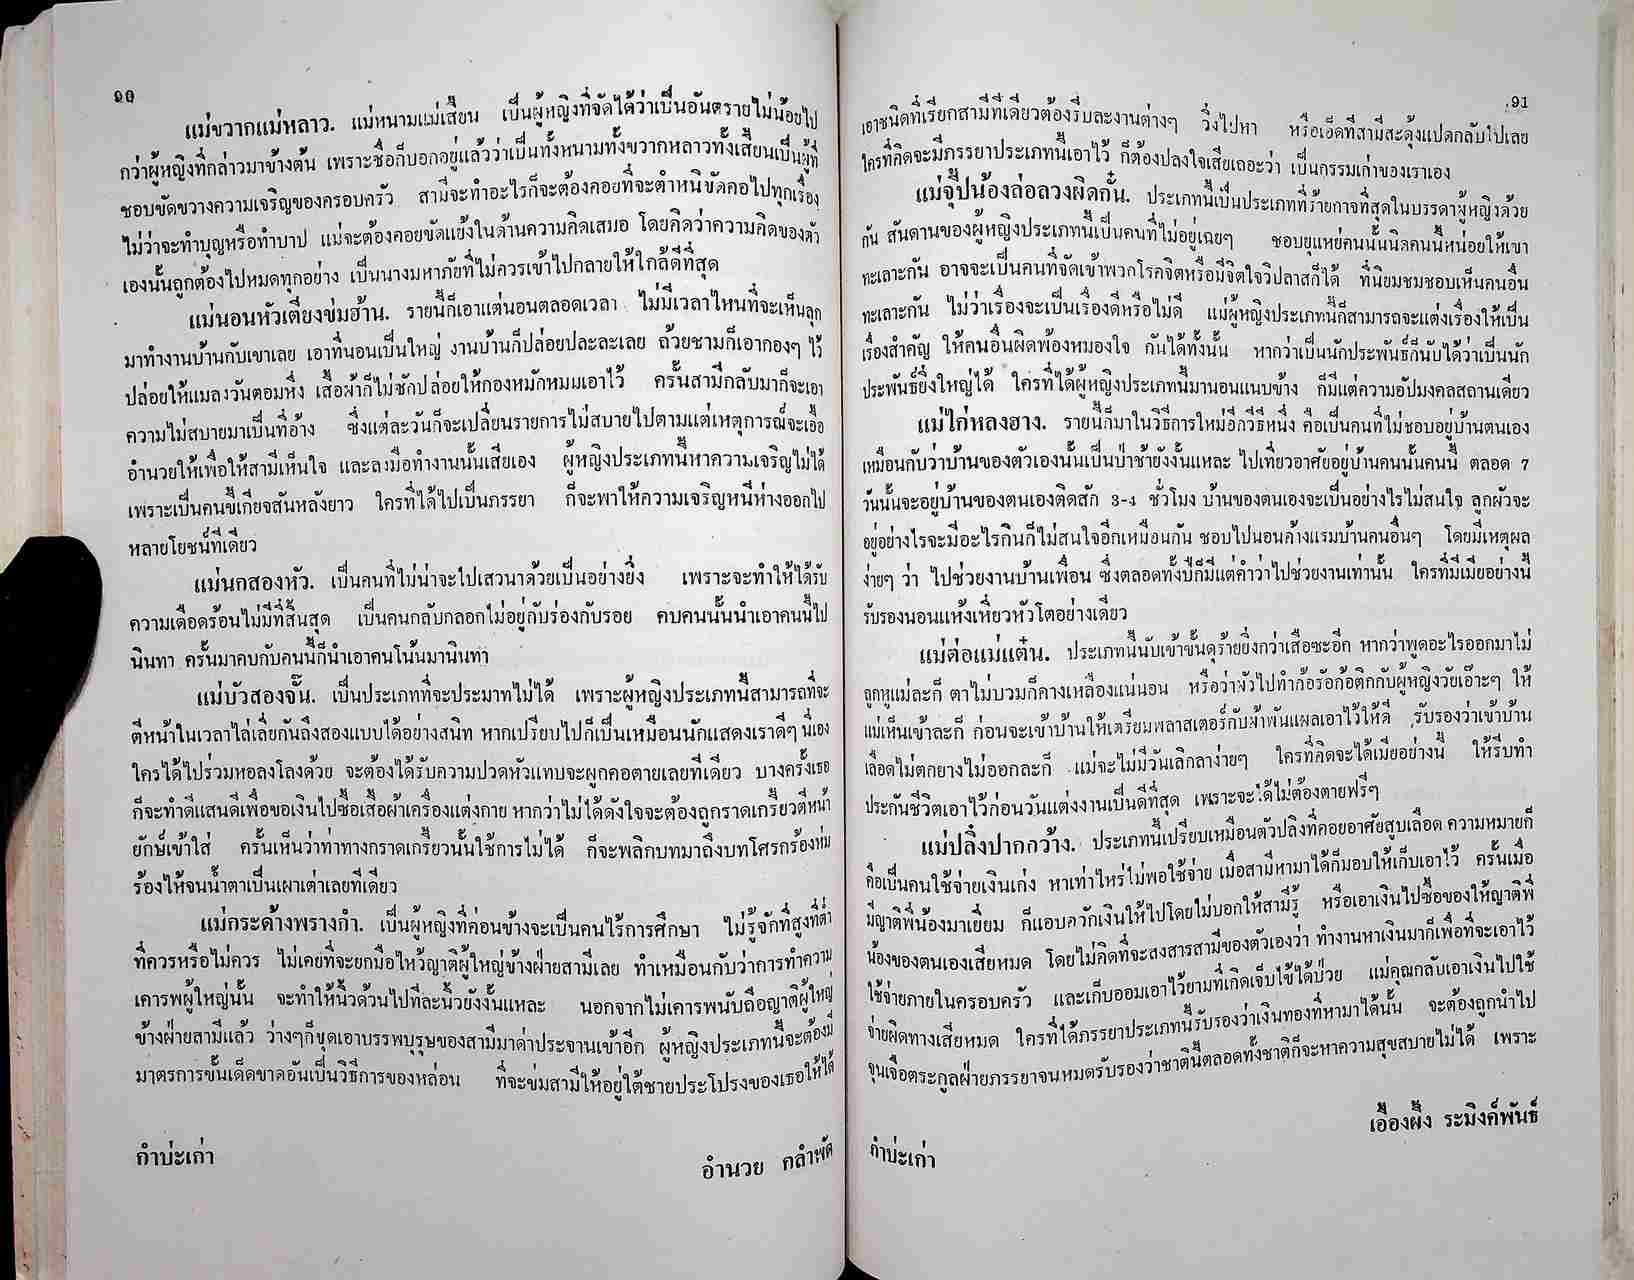 90
แม่ขวากแม่หลาว. แม่หนามแม่เสี้ยน เป็นผู้หญิงที่จัดได้ว่าเป็นอันตรายไม่น้อยไป
กว่าผู้หญิงที่กล่าวมาข้างต้น เพราะชื่อก็บอกอยู่แล้วว่าเป็นทั้งหนามทั้งขวากหลาวทั้งเสี้ยนเป็นผู้ที่
ชอบขัดขวางความเจริญของครอบครัว สามีจะทำอะไรก็จะต้องคอยที่จะตำหนิขัดคอไปทุกเรื่อง
ไม่ว่าจะทำบุญหรือทำบาป แม่จะต้องคอยขัดแย้งในด้านความคิดเสมอ โดยคิดว่าความคิดของตัว
เองนั้นถูกต้องไปหมดทุกอย่าง เป็นนางมหาภัยที่ไม่ควรเข้าไปกลายให้ใกล้ดีที่สุด
แม่นอนหัวเตียงข่มฮ้าน. รายนี้ก็เอาแต่นอนตลอดเวลา ไม่มีเวลาไหนที่จะเห็นลุก
มาทำงานบ้านกับเขาเลย เอาที่นอนเป็นใหญ่ งานบ้านก็ปล่อยปละละเลย ถ้วยชามก็เอากองๆ ไว้
ปล่อยให้แมลงวันตอมหึ่ง เสื้อผ้าก็ไม่ซักปล่อยให้กองหมักหมมเอาไว้ ครั้นสามีกลับมาก็จะเอา
ความไม่สบายมาเป็นที่อ้าง ซึ่งแต่ละวันก็จะเปลี่ยนรายการไม่สบายไปตามแต่เหตุการณ์จะเอื้อ
อำนวยให้เพื่อให้สามีเห็นใจ และลงมือทำงานนั้นเสียเอง ผู้หญิงประเภทนี้หาความเจริญไม่ได้
เพราะเป็นคนขี้เกียจสันหลังยาว ใครที่ได้ไปเป็นภรรยา ก็จะพาให้ความเจริญหนีห่างออกไป
หลายโยชน์ทีเดียว
แม่นกสองหัว. เป็นคนที่ไม่น่าจะไปเสวนาด้วยเป็นอย่างยิ่ง เพราะจะทำให้ได้รับ
ความเดือดร้อนไม่มีที่สิ้นสุด เป็นคนกลับกลอกไม่อยู่กับร่องกับรอย คบคนนั้นนำเอาคนนี้ไป
นินทา ครั้นมาคบกับคนนี้ก็นำเอาคนโน้นมานินทา
แม่บัวสองจั๊น. เป็นประเภทที่จะประมาทไม่ได้ เพราะผู้หญิงประเภทนี้สามารถที่จะ
ตีหน้าในเวลาไล่เลี่ยกันถึงสองแบบได้อย่างสนิท หากเปรียบไปก็เป็นเหมือนนักแสดงเราดีๆ นี่เอง
ใครได้ไปร่วมหอลงโลงด้วย จะต้องได้รับความปวดหัวแทบจะผูกคอตายเลยทีเดียว บางครั้งเธอ
ก็จะทำดีแสนดีเพื่อขอเงินไปซื้อเสื้อผ้าเครื่องแต่งกาย หากว่าไม่ได้ดังใจจะต้องถูกราดเกรี้ยวตีหน้า
ยักษ์เข้าใส่ ครั้นเห็นว่าท่าทางกราดเกรี้ยวนั้นใช้การไม่ได้ ก็จะพลิกบทมาถึงบทโศกร้องห่ม
ร้องไห้จนน้ำตาเป็นเผาเต่าเลยทีเดียว
แม่กระด้างพรางกำ. เป็นผู้หญิงที่ค่อนข้างจะเป็นคนไร้การศึกษา ไม่รู้จักที่สูงที่ต่ำ
ที่ควรหรือไม่ควร ไม่เคยที่จะยกมือไหว้ญาติผู้ใหญ่ข้างฝ่ายสามีเลย ทำเหมือนกับว่าการทำความ
เคารพผู้ใหญ่นั้น จะทำให้นิ้วด้วนไปทีละนิ้วยังงั้นแหละ นอกจากไม่เคารพนับถือญาติผู้ใหญ่
ข้างฝ่ายสามีแล้ว ว่างๆก็ขุดเอาบรรพบุรุษของสามีมาด่าประจานเข้าอีก ผู้หญิงประเภทนี้จะต้องมี
มาตรการขั้นเด็ดขาดอันเป็นวิธีการของหล่อน ที่จะข่มสามีให้อยู่ใต้ชายประโปรงของเธอให้ได้
กำบ่ะเก่า
อำนวย กลำพัด
91
เอาชนิดที่เรียกสามีทีเดียวต้องรีบละงานต่างๆ วิ่งไปหา หรือเอ็ดทีสามีสะดุ้งแปดกลับไปเลย
ใครที่คิดจะมีภรรยาประเภทนี้เอาไว้ ก็ต้องปลงใจเสียเถอะว่า เป็นกรรมเก่าของเราเอง
แม่จุ๊ปน้องล่อลวงผิดกั๋น. ประเภทนี้เป็นประเภทที่ร้ายกาจที่สุดในบรรดาผู้หญิงด้วย
กัน สันดานของผู้หญิงประเภทนี้เป็นคนที่ไม่อยู่เฉยๆ ชอบยุแหย่คนนั้นนิดคนนี้หน่อยให้เขา
ทะเลาะกัน อาจจะเป็นคนที่จัดเข้าพวกโรคจิตหรือมีจิตใจวิปลาสก็ได้ ที่นิยมชมชอบเห็นคนอื่น
ทะเลาะกัน ไม่ว่าเรื่องจะเป็นเรื่องดีหรือไม่ดี แม่ผู้หญิงประเภทนี้ก็สามารถจะแต่งเรื่องให้เป็น
เรื่องสำคัญ ให้คนอื่นผิดพ้องหมองใจ กันได้ทั้งนั้น หากว่าเป็นนักประพันธ์ก็นับได้ว่าเป็นนัก
ประพันธ์ยิ่งใหญ่ได้ ใครที่ได้ผู้หญิงประเภทนี้มานอนแนบข้าง ก็มีแต่ความอัปมงคลสถานเดียว
แม่ไก่หลงฮาง. รายนี้ก็มาในวิธีการใหม่อีกวิธีหนึ่ง คือเป็นคนที่ไม่ชอบอยู่บ้านตนเอง
เหมือนกับว่าบ้านของตัวเองนั้นเป็นป่าช้ายังงั้นแหละ ไปเที่ยวอาศัยอยู่บ้านคนนั้นคนนี้ ตลอด 7
วันนั้นจะอยู่บ้านของตนเองติดสัก 3-4 ชั่วโมง บ้านของตนเองจะเป็นอย่างไรไม่สนใจ ลูกผัวจะ
อยู่อย่างไรจะมีอะไรกินก็ไม่สนใจอีกเหมือนกัน ชอบไปนอนค้างแรมบ้านคนอื่นๆ โดยมีเหตุผล
ง่ายๆ ว่า ไปช่วยงานบ้านเพื่อน ซึ่งตลอดทั้งปีก็มีแต่คำว่าไปช่วยงานเท่านั้น ใครที่มีเมียอย่างนี้
รับรองนอนแห้งเหี่ยวหัวโตอย่างเดียว
แม่ต่อแม่แต๋น. ประเภทนี้นับเข้าขั้นดุร้ายยิ่งกว่าเสือซะอีก หากว่าพูดอะไรออกมาไม่
ถูกหูแม่ละก็ ตาไม่บวมก็คางเหลืองแน่นอน หรือว่าผัวไปทำก้อร้อก้อติกกับผู้หญิงวัยเอ๊าะๆ ให้
แม่เห็นเข้าละก็ ก่อนจะเข้าบ้านให้เตรียมพลาสเตอร์กับผ้าพันแผลเอาไว้ให้ดี รับรองว่าเข้าบ้าน
เลือดไม่ตกยางไม่ออกละก็ แม่จะไม่มีวันเลิกลาง่ายๆ ใครที่คิดจะได้เมียอย่างนี้ ให้รีบทำ
ประกันชีวิตเอาไว้ก่อนวันแต่งงานเป็นดีที่สุด เพราะจะได้ไม่ต้องตายฟรีๆ
แม่ปลิ๋งปากกว้าง. ประเภทนี้เปรียบเหมือนตัวปลิงที่คอยอาศัยสูบเลือด ความหมายก็
คือเป็นคนใช้จ่ายเงินเก่ง หาเท่าไหร่ไม่พอใช้จ่าย เมื่อสามีหามาได้ก็มอบให้เก็บเอาไว้ ครั้นเมื่อ
มีญาติพี่น้องมาเยี่ยม ก็แอบควักเงินให้ไปโดยไม่บอกให้สามีรู้ หรือเอาเงินไปซื้อของให้ญาติพี่
น้องของตนเองเสียหมด โดยไม่คิดที่จะสงสารสามีของตัวเองว่า ทำงานหาเงินมาก็เพื่อที่จะเอาไว้
ใช้จ่ายภายในครอบครัว และเก็บออมเอาไว้ยามที่เกิดเจ็บไข้ได้ป่วย แม่คุณกลับเอาเงินไปใช้
จ่ายผิดทางเสียหมด ใครที่ได้ภรรยาประเภทนี้รับรองว่าเงินทองที่หามาได้นั้น จะต้องถูกนำไป
ขุนเจือตระกูลฝ่ายภรรยาจนหมดรับรองว่าชาตินี้ตลอดทั้งชาติก็จะหาความสุขสบายไม่ได้ เพราะ
เอื้องผึ้ง ระมิงค์พันธ์
กำบ่ะเก่า